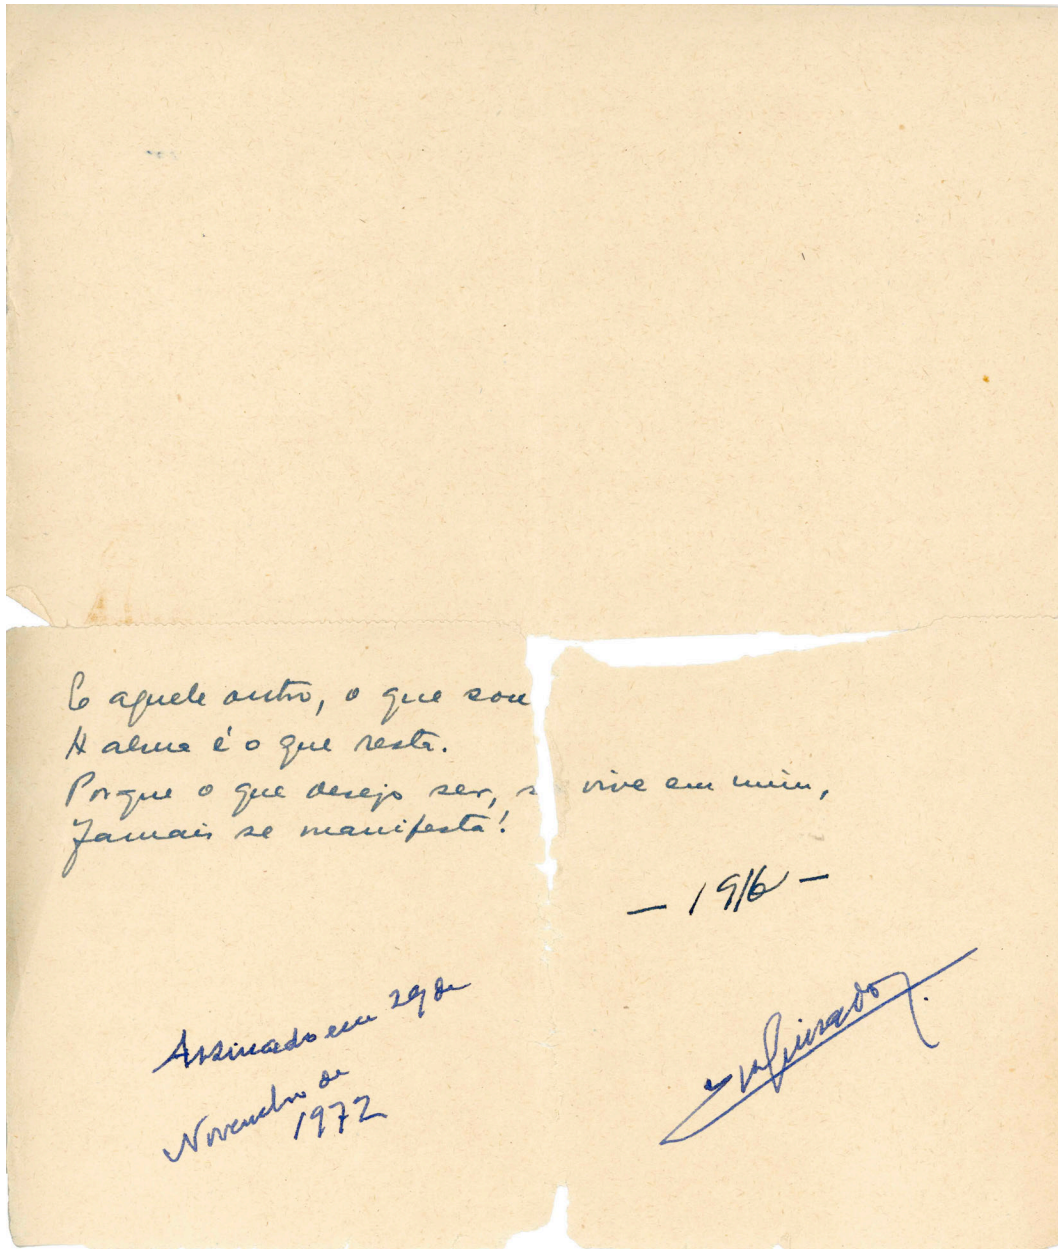 E aquele outro, o que sou
A alma é o que resta.
Porque o que desejo ser, s vive em mim,
Jamais se manifesta!
— 1916 —
Assinado em 29 de
Novembro de
1972